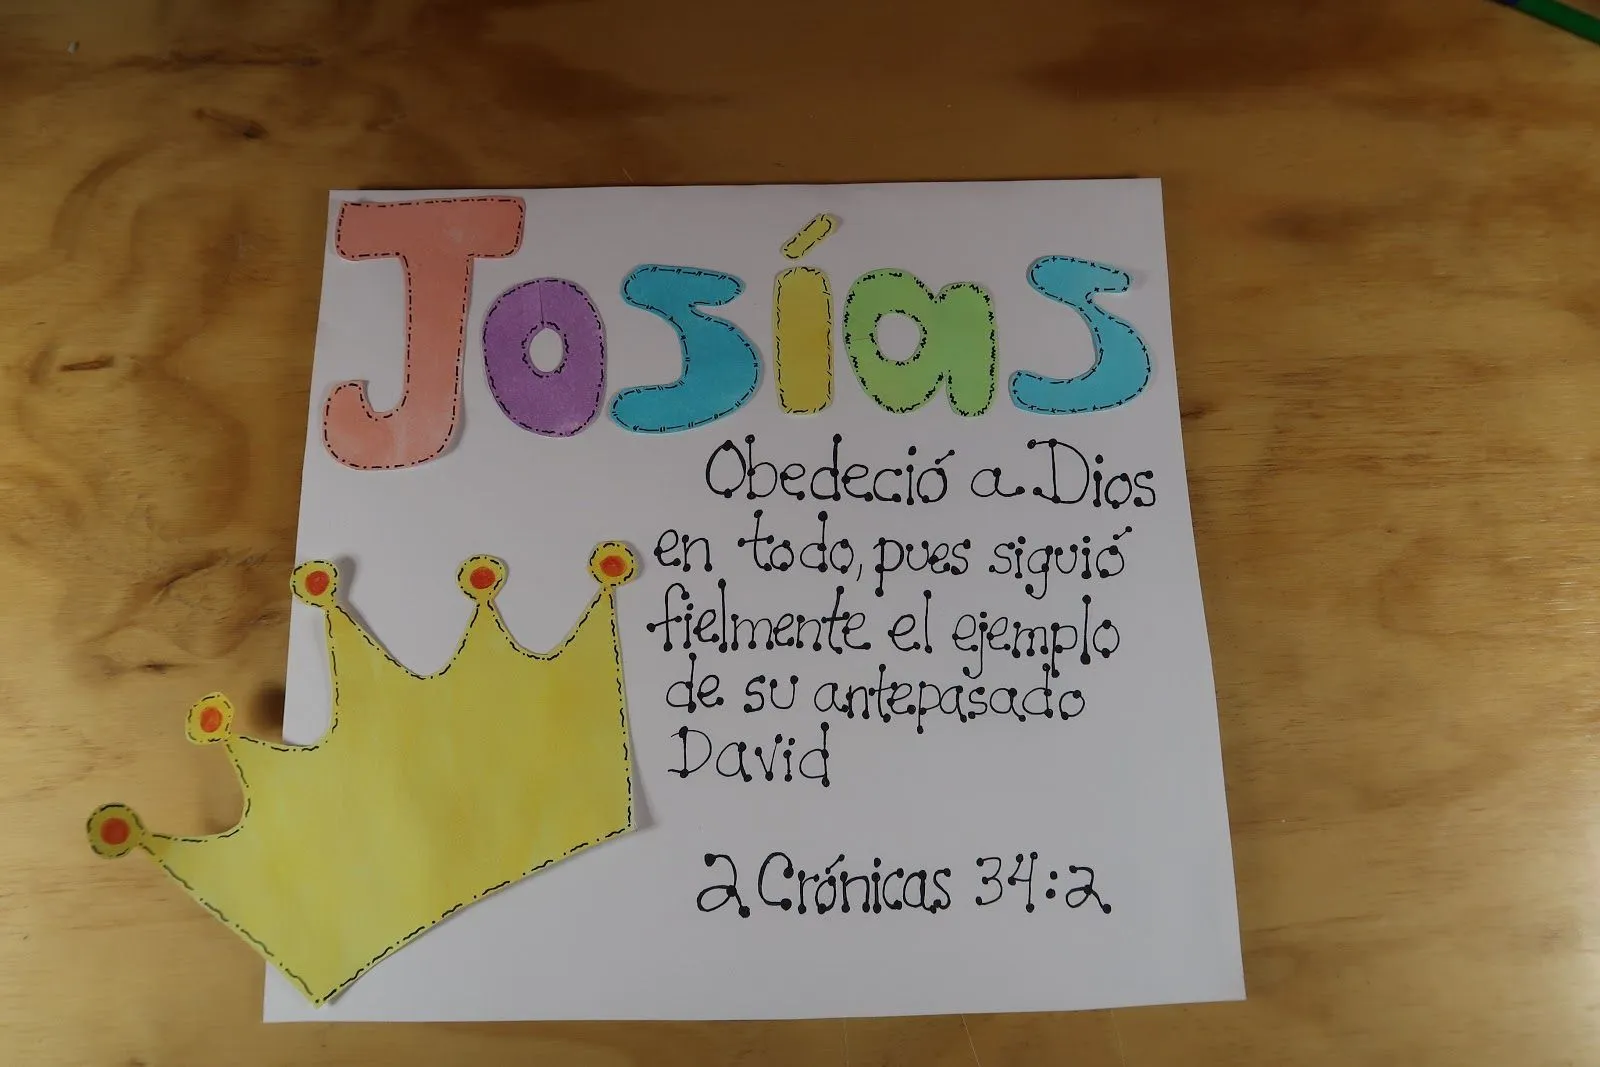 Josías
Obedeció a Dios
en todo, pues siguió
fielmente el ejemplo
de su antepasado
David
2 Crónicas 34:2